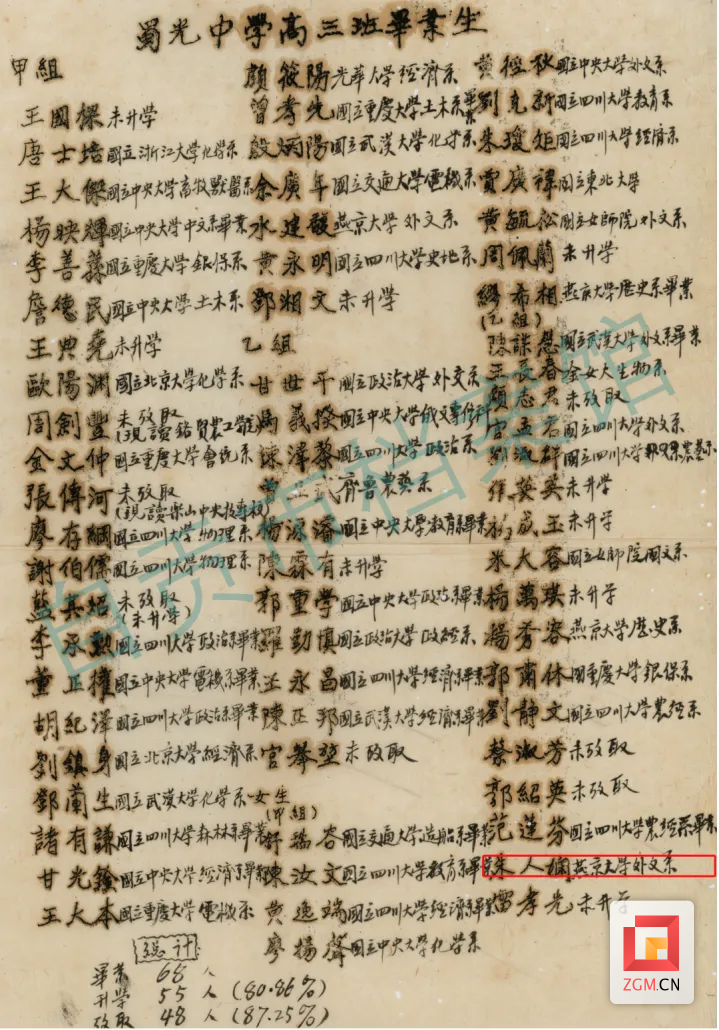 蜀光中學高三班畢業生
甲組
王國樑 未升學
唐士培 國立浙江大學化學系
王大傑 國立中央大學畜牧獸醫系
楊映輝 國立中央大學中文系畢業
李善蓀 國立重慶大學銀保系
詹德民 國立中央大學土木系
王典堯 未升學
歐陽淵 國立北京大學化學系
周劍豐 未攷取
金文仲 國立重慶大學會統系
張傳河 未攷取
(現讀樂山中央技專校)
廖存綱 國立四川大學物理系
謝伯儒 國立四川大學物理系
藍其紹 未攷取
(未升學)
李承勳 國立四川大學政治系畢業
董正權 國立中央大學電機系畢業
胡紀澤 國立四川大學政治系畢業
劉鎮身 國立北京大學經濟系
鄧蘭生 國立武漢大學化學系
諸有謙 國立四川大學森林系畢業
甘光銓 國立中央大學經濟系畢業
王大本 國立重慶大學電機系
顏筱陽 光華大學經濟系
曾孝先 國立重慶大學土木系畢業
殷炳陽 國立武漢大學化學系
余廣年 國立交通大學電機系
水建馥 燕京大學外文系
黄永明 國立四川大學史地系
鄧湘文 未升學
乙組
甘世平 國立政治大學外交系
馬義撥 國立中央大學俄文專修科
陳澤蓁 國立四川大學政治系
黄正武 齊魯農藝系
楊源濬 國立中央大學教育系畢業
陳霖有 未升學
郭重學 國立中央大學政治系畢業
羅勤慎 國立政治大學政經系
王永昌 國立四川大學經濟系畢業
陳正邦 國立武漢大學經濟系畢業
官舉堃 未攷取
女生
(甲組)
舒瑞容 國立交通大學造船系畢業
陳汝文 國立四川大學教育系畢業
黄逸端 國立四川大學經濟系畢業
廖揚聲 國立中央大學化學系
黄徑秋 國立中央大學外文系
劉克新 國立四川大學教育系
朱瓊矩 國立四川大學經濟系
賈廣禕 國立東北大學
黄毓松 國立女師院外文系
周佩蘭 未升學
繆希相 燕京大學歷史系畢業
(乙組)
陳謀慧 國立武漢大學外文系畢業
王長春 金女大生物系
顏志君 未攷取
官孟君 國立四川大學外文系
劉淑群 國立四川大學
張英英 未升學
楊成玉 未升學
米大容 國立女師院國文系
楊萬琪 未升學
楊秀容 燕京大學歷史系
郭甫休 國立重慶大學銀保系
劉靜文 國立四川大學農經系
蔡淑芳 未攷取
郭紹英 未攷取
范蓮芬 國立四川大學農經系畢業
陳人嫻 燕京大學外文系
雷孝光 未升學
總計
畢業 68人
升學 55人 (80.86%)
攷取 48人 (87.25%)
自貢市档案馆
ZGM.CN